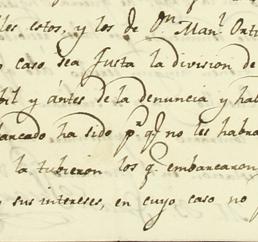 les estos, y los de Dn. Manl. Orti
caso sea Justa la division de
bil y ántes de la denuncia y hab
barcado ha sido pr. q.e no les habra
la tubieron los q.e embarcaron
sus intereses, en cuyo caso no p